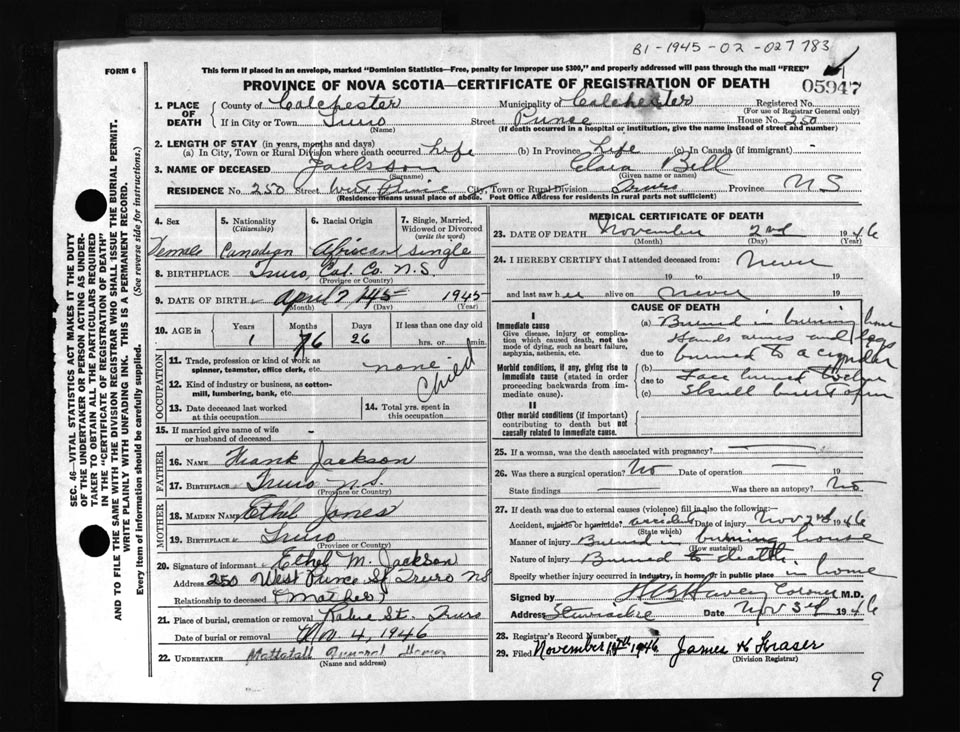 B1-1945-02-027783
FORM 6
This form if placed in an envelope, marked "Dominion Statistics—Free, penalty for improper use $300," and properly addressed will pass through the mail "FREE"
05947
PROVINCE OF NOVA SCOTIA—CERTIFICATE OF REGISTRATION OF DEATH
1. PLACE OF DEATH
County of Colchester Municipality of Colchester Registered No.
(For use of Registrar General only)
If in City or Town Truro Street Prince House No. 250
(Name) (If death occurred in a hospital or institution, give the name instead of street and number)
2. LENGTH OF STAY (in years, months and days)
(a) In City, Town or Rural Division where death occurred life (b) In Province life (c) In Canada (if immigrant) -
3. NAME OF DECEASED Jackson Clara Bell
(Surname) (Given name or names)
RESIDENCE No. 250 Street West Prince City, Town or Rural Division Truro Province N S
(Residence means usual place of abode. Post Office Address for residents in rural parts not sufficient)
4. Sex Female
5. Nationality (Citizenship) Canadian
6. Racial Origin African
7. Single, Married, Widowed or Divorced (write the word) single
8. BIRTHPLACE Truro, Col. Co. N.S.
(Province or Country)
9. DATE OF BIRTH April 7 1945
(Month) (Day) (Year)
10. AGE in Years Months Days If less than one day old
1 6 26 hrs. or min.
OCCUPATION
11. Trade, profession or kind of work as spinner, teamster, office clerk, etc. none
Child
12. Kind of industry or business, as cotton-mill, lumbering, bank, etc.
13. Date deceased last worked at this occupation
14. Total yrs. spent in this occupation
15. If married give name of wife or husband of deceased -
FATHER
16. NAME Frank Jackson
17. BIRTHPLACE Truro N.S.
(Province or Country)
MOTHER
18. MAIDEN NAME Ethel Jones
19. BIRTHPLACE Truro
(Province or Country)
20. Signature of informant Ethel M. Jackson
Address 250 West Prince St Truro NS
Relationship to deceased (Mother)
21. Place of burial, cremation or removal St. Truro
Date of burial or removal Nov. 4, 1946
22. UNDERTAKER Mattatall Funeral Home
(Name and address)
MEDICAL CERTIFICATE OF DEATH
23. DATE OF DEATH November 2nd 1946
(Month) (Day) (Year)
24. I HEREBY CERTIFY that I attended deceased from: Never
19 to 19
and last saw her alive on Never 19
CAUSE OF DEATH
I
Immediate cause
Give disease, injury or complication which caused death, not the mode of dying, such as heart failure, asphyxia, asthenia, etc.
Morbid conditions, if any, giving rise to immediate cause (stated in order proceeding backwards from immediate cause).
II
Other morbid conditions (if important) contributing to death but not causally related to immediate cause.
(a) Burned in burning home
Hands arms and legs
due to burned to a
(b)
due to Face burned
(c) Skull burst open
25. If a woman, was the death associated with pregnancy?
26. Was there a surgical operation? No Date of operation - 19
State findings Was there an autopsy? No
27. If death was due to external causes (violence) fill in also the following:—
Accident, suicide or homicide? accident Date of injury Nov 2nd 1946
(State which)
Manner of injury Burned in burning house
(How sustained)
Nature of injury Burned to death
Specify whether injury occurred in industry, in home, or in public place in home
Signed by Coroner M.D.
Address Stewiacke Date Nov 3rd 1946
28. Registrar's Record Number
29. Filed November 1946 James K Fraser
(Division Registrar)
9
SEC. 46—VITAL STATISTICS ACT MAKES IT THE DUTY OF THE UNDERTAKER OR PERSON ACTING AS UNDERTAKER TO OBTAIN ALL THE PARTICULARS REQUIRED IN THE "CERTIFICATE OF REGISTRATION OF DEATH" AND TO FILE THE SAME WITH THE DIVISION REGISTRAR WHO SHALL ISSUE THE BURIAL PERMIT.
WRITE PLAINLY WITH UNFADING INK. THIS IS A PERMANENT RECORD.
Every item of information should be carefully supplied. (See reverse side for instructions.)